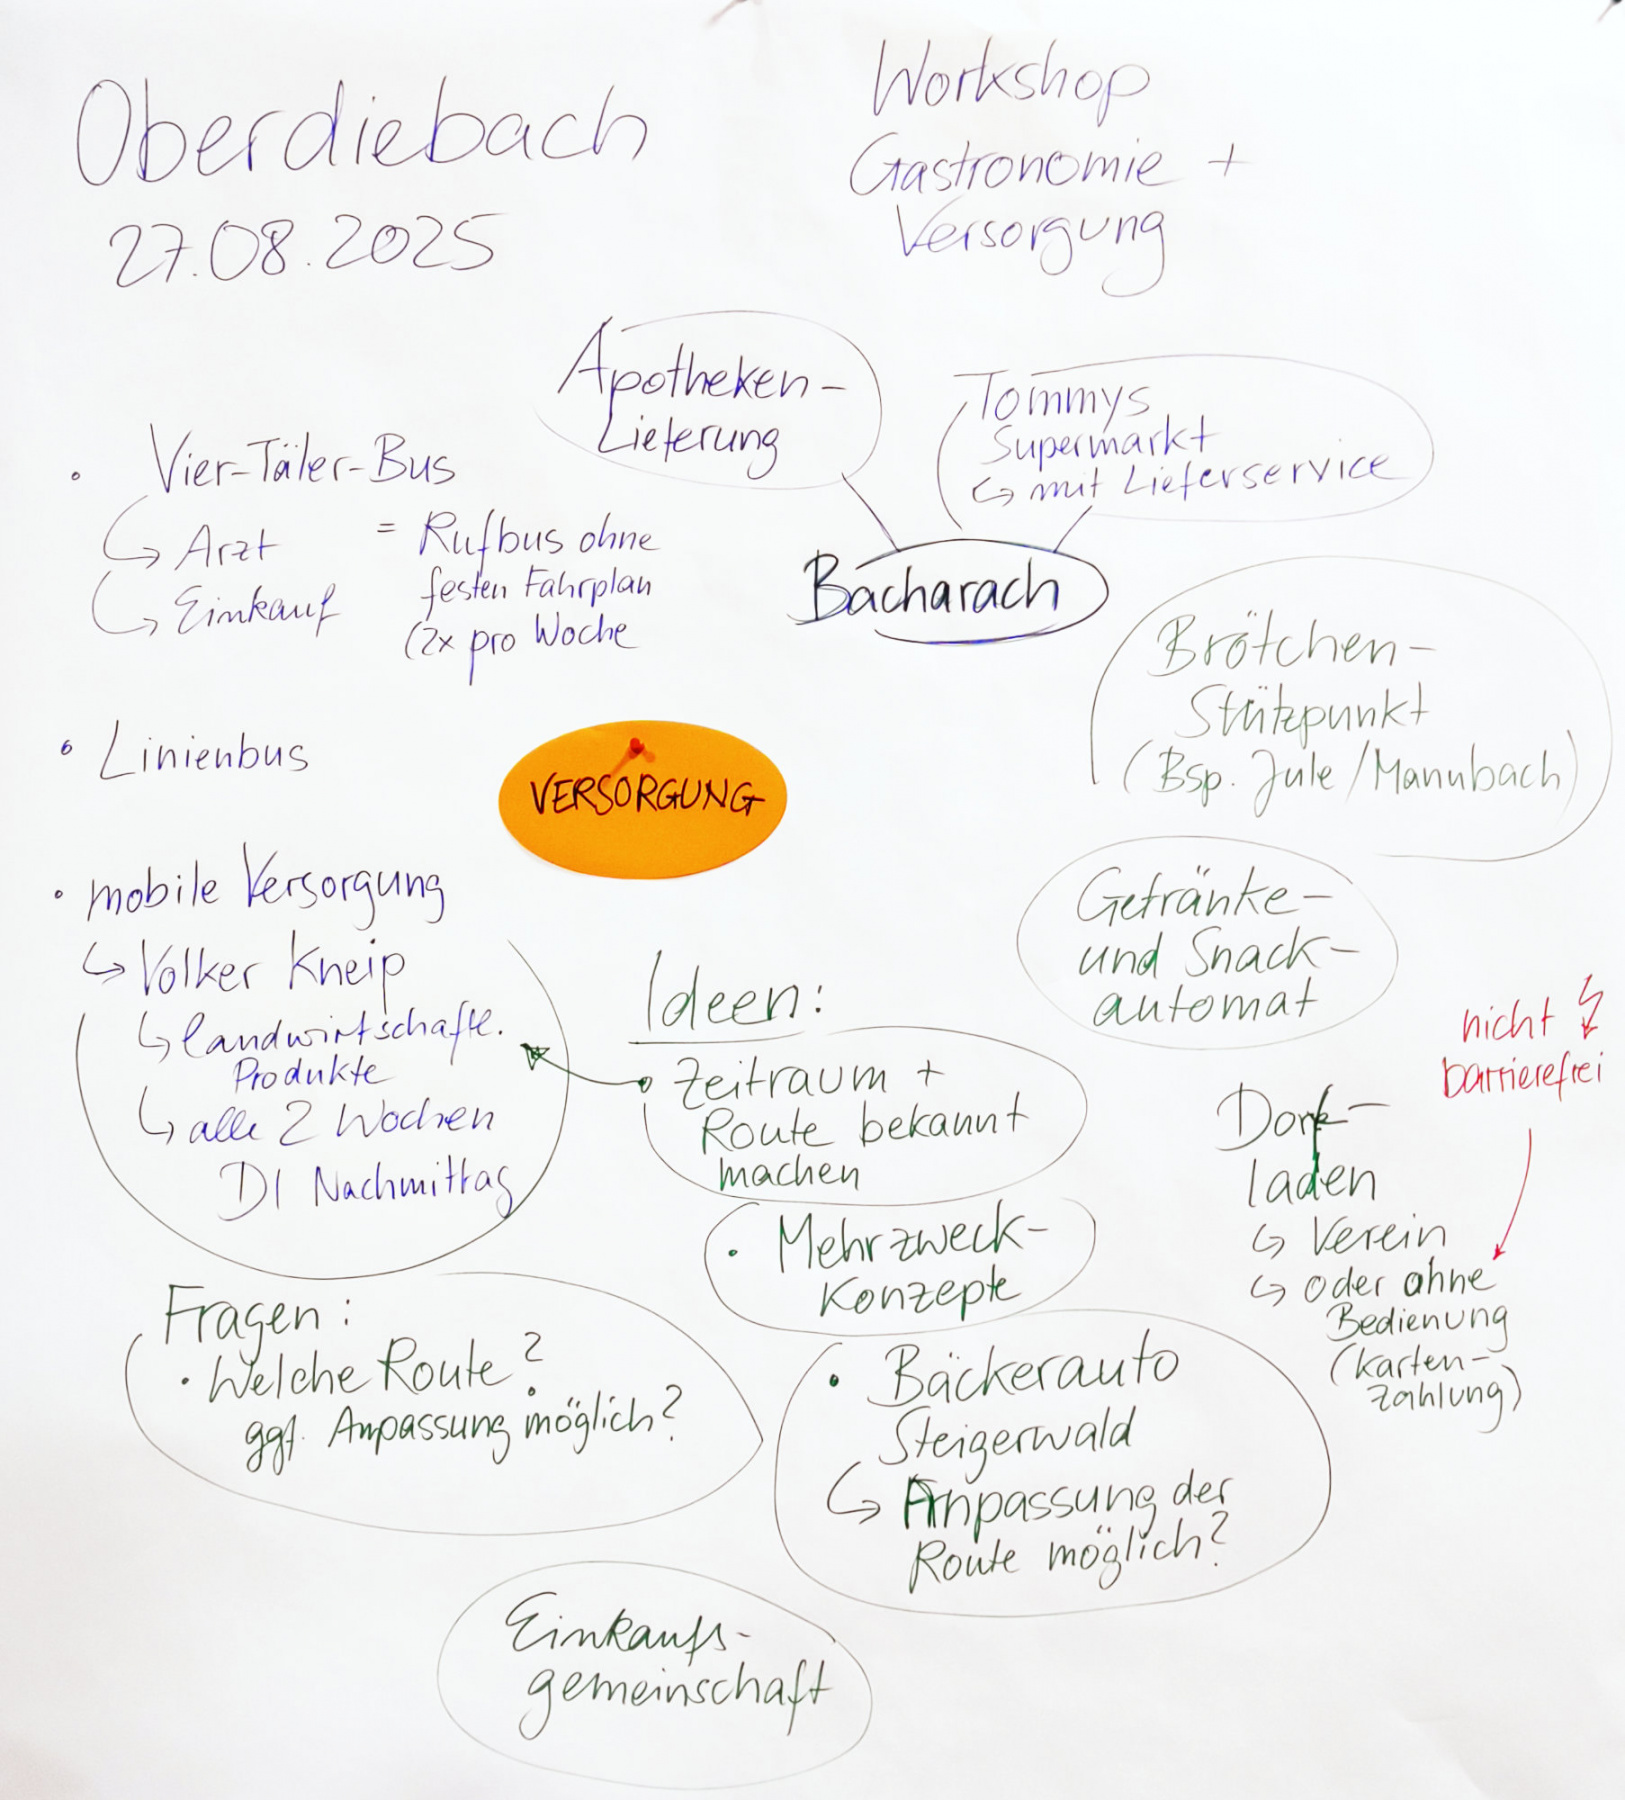 Oberdiebach
27.08.2025
Workshop
Gastronomie +
Versorgung
Apotheken-
Lieferung
Tommys
Supermarkt
↳ mit Lieferservice
Bacharach
• Vier-Täler-Bus
↳ Arzt
↳ Einkauf
= Rufbus ohne
festen Fahrplan
(2x pro Woche
• Linienbus
VERSORGUNG
Brötchen-
Stützpunkt
(Bsp. Jule/Manubach)
Getränke-
und Snack-
automat
• mobile Versorgung
↳ Volker Kneip
↳ landwirtschaftl.
Produkte
↳ alle 2 Wochen
DI Nachmittag
Ideen:
• Zeitraum +
Route bekannt
machen
• Mehrzweck-
Konzepte
• Bäckerauto
Steigerwald
↳ Anpassung der
Route möglich?
nicht
barrierefrei
Dorf-
laden
↳ Verein
↳ oder ohne
Bedienung
(Karten-
zahlung)
Fragen:
• Welche Route?
ggf. Anpassung möglich?
Einkaufs-
gemeinschaft